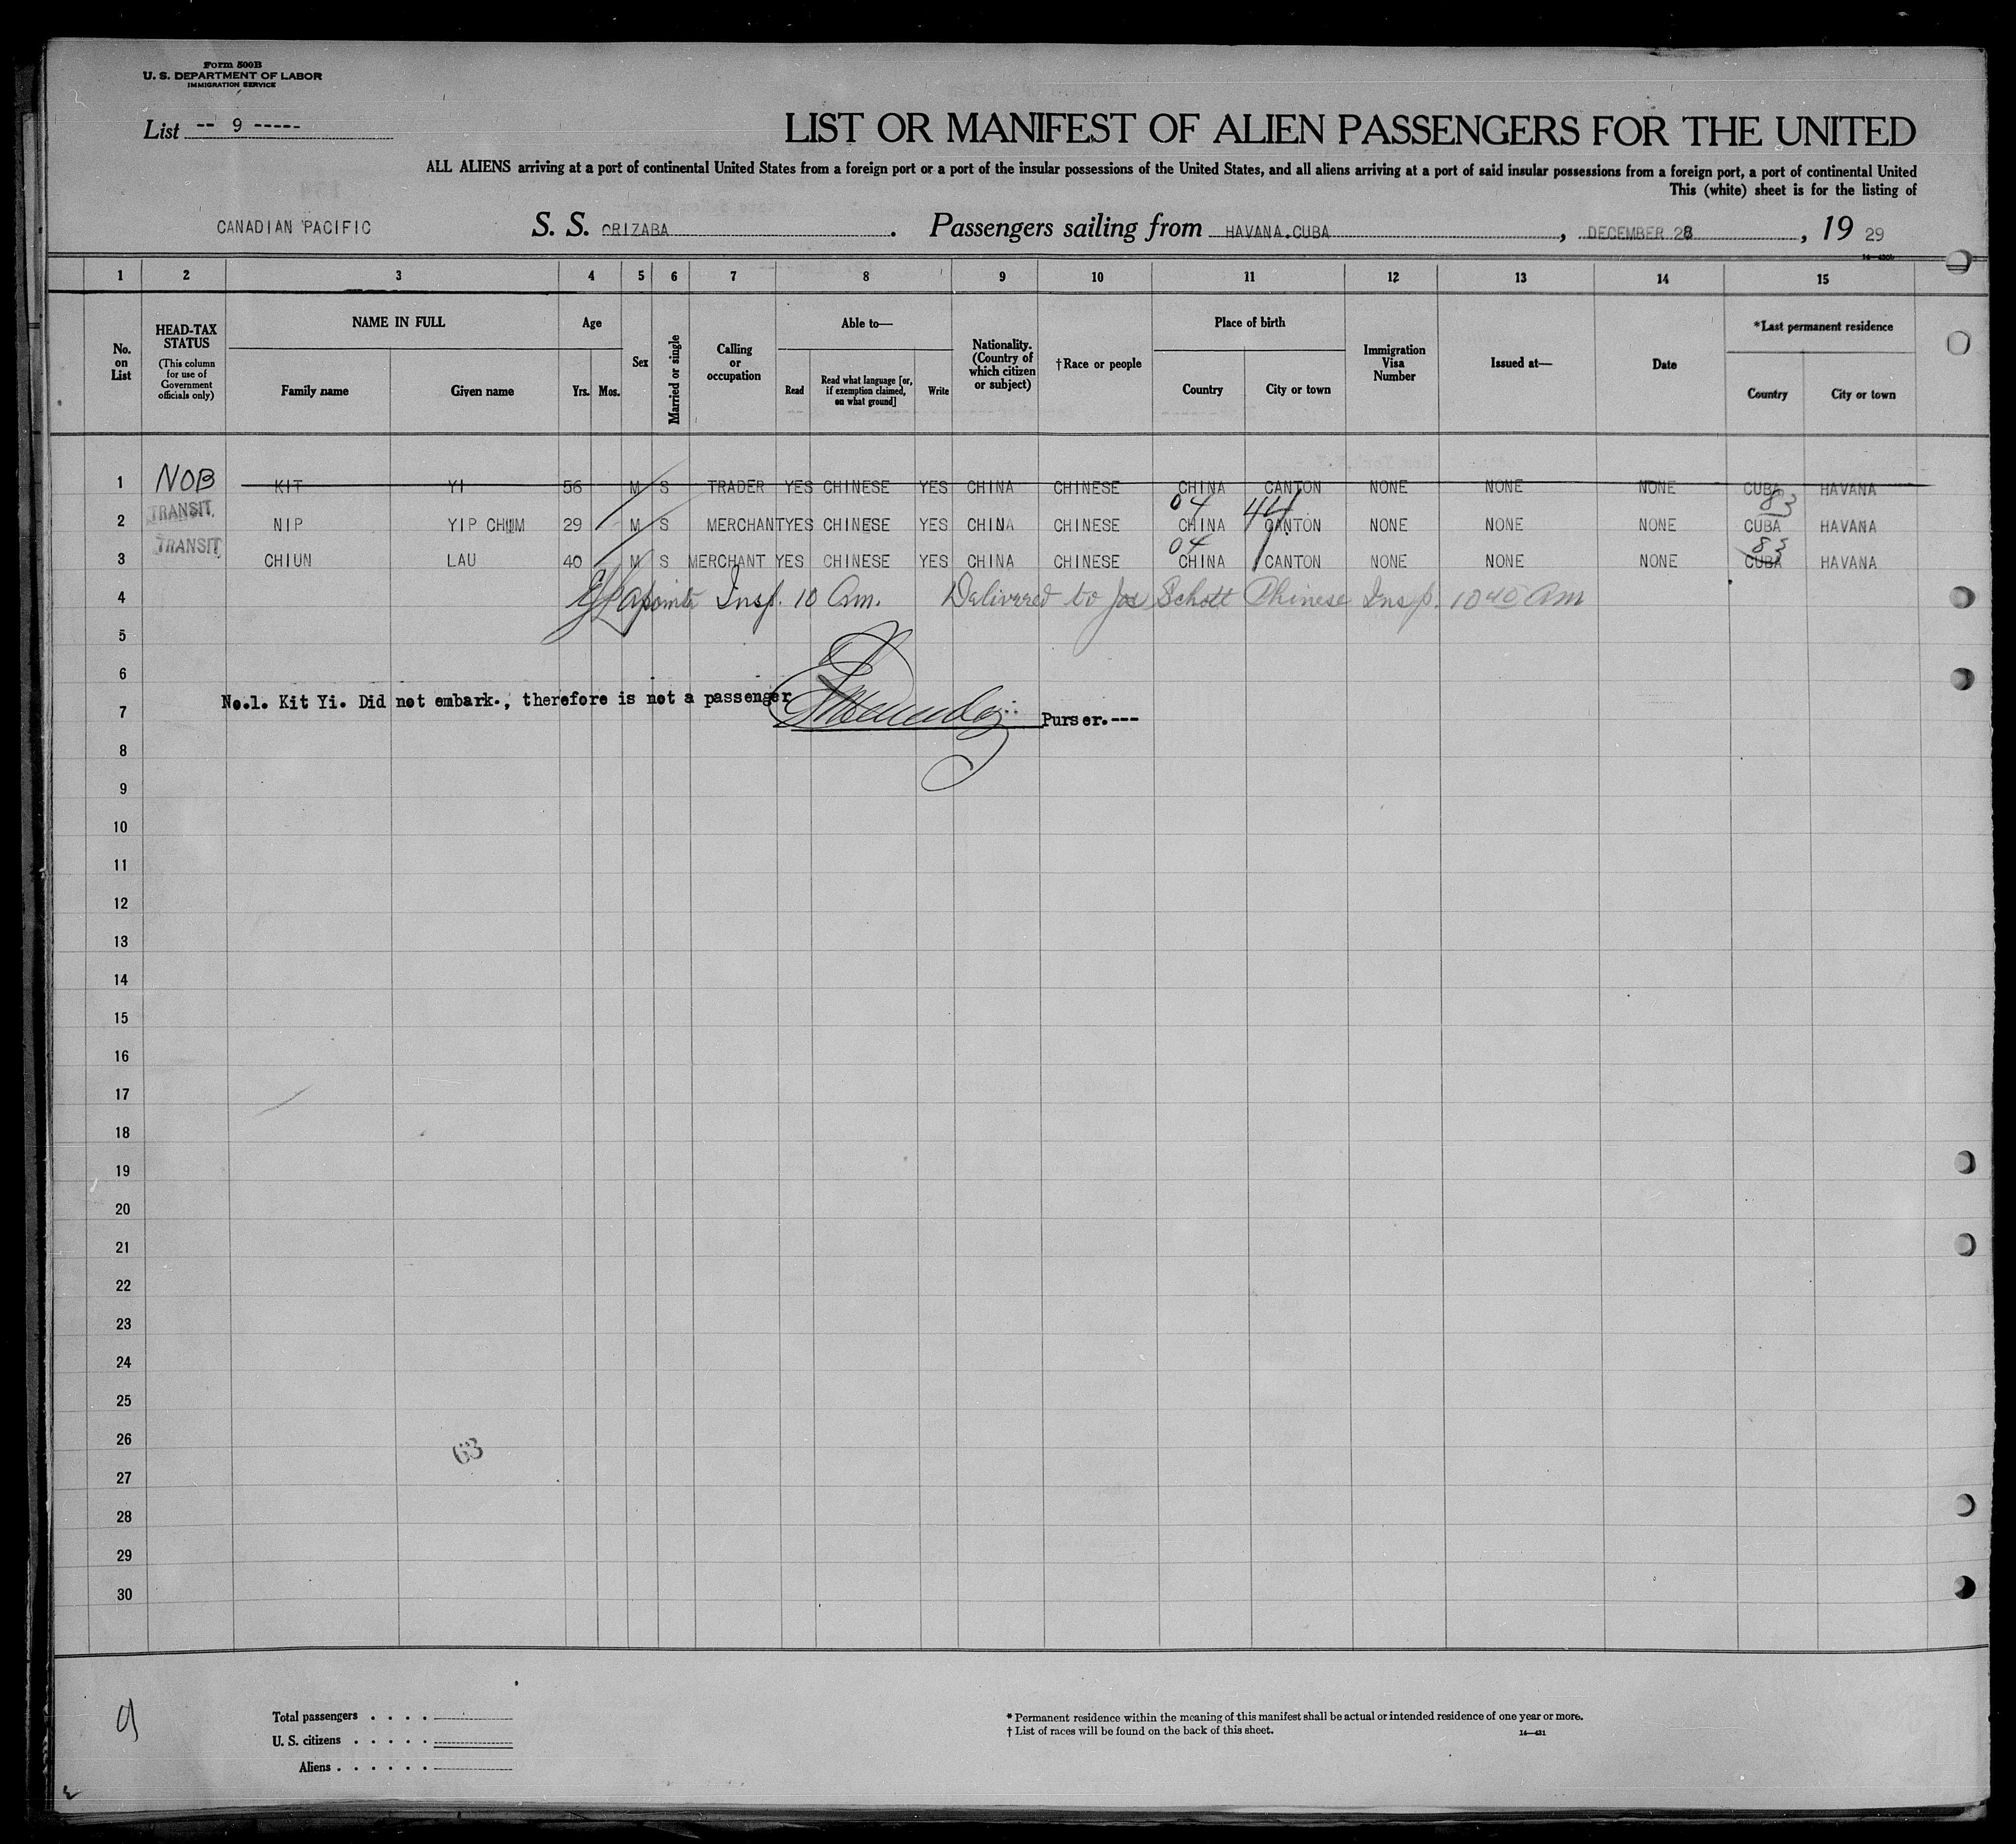 Form 500B
U. S. DEPARTMENT OF LABOR
IMMIGRATION SERVICE
List -- 9 -----
LIST OR MANIFEST OF ALIEN PASSENGERS FOR THE UNITED
ALL ALIENS arriving at a port of continental United States from a foreign port or a port of the insular possessions of the United States, and all aliens arriving at a port of said insular possessions from a foreign port, a port of continental United
This (white) sheet is for the listing of
CANADIAN PACIFIC S. S. ORIZABA. Passengers sailing from HAVANA.CUBA, DECEMBER 28, 19 29
1 2 3 4 5 6 7 8 9 10 11 12 13 14 15
No. on List
HEAD-TAX STATUS
(This column for use of Government officials only)
NAME IN FULL
Family name Given name
Age
Yrs. Mos.
Sex
Married or single
Calling or occupation
Able to—
Read
Read what language [or, if exemption claimed, on what ground]
Write
Nationality. (Country of which citizen or subject)
†Race or people
Place of birth
Country City or town
Immigration Visa Number
Issued at—
Date
*Last permanent residence
Country City or town
1 NOB KIT YI 56 M S TRADER YES CHINESE YES CHINA CHINESE CHINA CANTON NONE NONE NONE CUBA HAVANA
04 44 83
2 TRANSIT NIP YIP CHUM 29 M S MERCHANT YES CHINESE YES CHINA CHINESE CHINA CANTON NONE NONE NONE CUBA HAVANA
04 83
3 TRANSIT CHIUN LAU 40 M S MERCHANT YES CHINESE YES CHINA CHINESE CHINA CANTON NONE NONE NONE CUBA HAVANA
4 Insp. 10 Am. Delivered to Jos Schott Chinese Insp. 10 40 Am
5
6
No.1. Kit Yi. Did not embark., therefore is not a passenger
7 Purser.---
8
9
10
11
12
13
14
15
16
17
18
19
20
21
22
23
24
25
26
63
27
28
29
30
9
Total passengers . . . .
U. S. citizens . . . . .
Aliens . . . . . .
* Permanent residence within the meaning of this manifest shall be actual or intended residence of one year or more.
† List of races will be found on the back of this sheet.
14—431